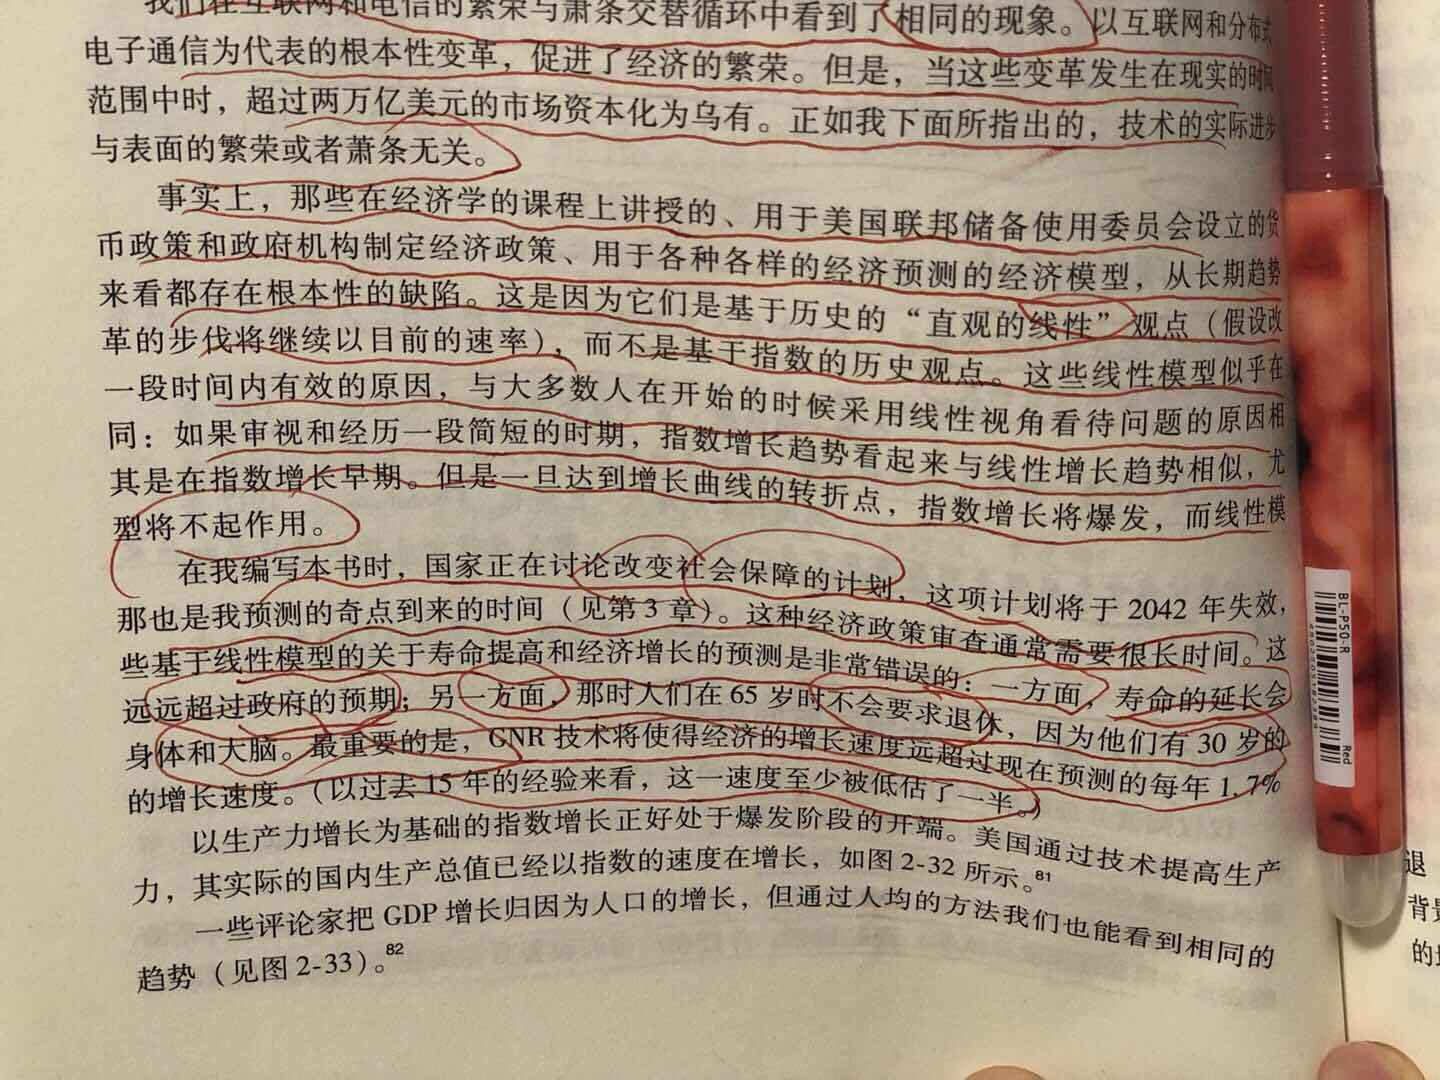 我们在互联网和电信的繁荣与萧条交替循环中看到了相同的现象。以互联网和分布式
电子通信为代表的根本性变革，促进了经济的繁荣。但是，当这些变革发生在现实的时间
范围中时，超过两万亿美元的市场资本化为乌有。正如我下面所指出的，技术的实际进步
与表面的繁荣或者萧条无关。
事实上，那些在经济学的课程上讲授的、用于美国联邦储备使用委员会设立的货
币政策和政府机构制定经济政策、用于各种各样的经济预测的经济模型，从长期趋势
来看都存在根本性的缺陷。这是因为它们是基于历史的“直观的线性”观点（假设改
革的步伐将继续以目前的速率），而不是基于指数的历史观点。这些线性模型似乎在
一段时间内有效的原因，与大多数人在开始的时候采用线性视角看待问题的原因相
同：如果审视和经历一段简短的时期，指数增长趋势看起来与线性增长趋势相似，尤
其是在指数增长早期。但是一旦达到增长曲线的转折点，指数增长将爆发，而线性模
型将不起作用。
在我编写本书时，国家正在讨论改变社会保障的计划，这项计划将于 2042 年失效，
那也是我预测的奇点到来的时间（见第 3 章）。这种经济政策审查通常需要很长时间。这
些基于线性模型的关于寿命提高和经济增长的预测是非常错误的：一方面，寿命的延长会
远远超过政府的预期；另一方面，那时人们在 65 岁时不会要求退休，因为他们有 30 岁的
身体和大脑。最重要的是，GNR 技术将使得经济的增长速度远超过现在预测的每年 1.7%
的增长速度。（以过去 15 年的经验来看，这一速度至少被低估了一半。）
以生产力增长为基础的指数增长正好处于爆发阶段的开端。美国通过技术提高生产
力，其实际的国内生产总值已经以指数的速度在增长，如图 2-32 所示。81
一些评论家把 GDP 增长归因为人口的增长，但通过人均的方法我们也能看到相同的
趋势（见图 2-33）。82
BL-P50-R
Red
退
背景
的